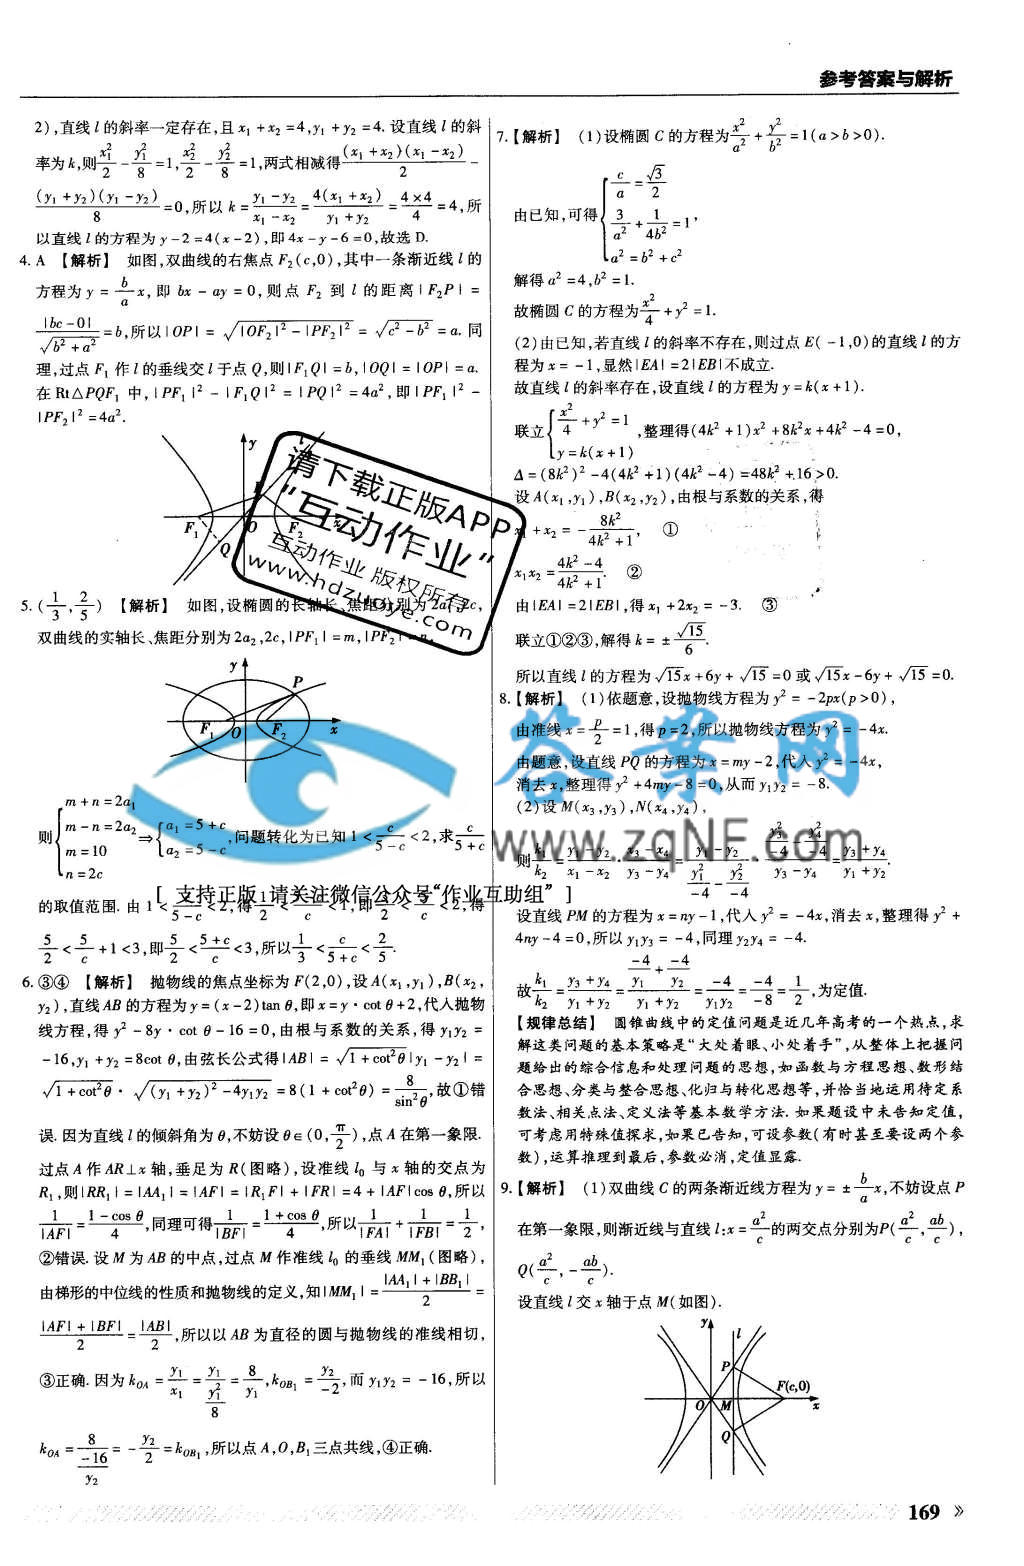 参考答案与解析
2),直线 l 的斜率一定存在,且 x₁ + x₂ = 4, y₁ + y₂ = 4. 设直线 l 的斜
率为 k,则 x₁²/2 - y₁²/8 = 1, x₂²/2 - y₂²/8 = 1,两式相减得 (x₁ + x₂)(x₁ - x₂)/2 -
(y₁ + y₂)(y₁ - y₂)/8 = 0,所以 k = (y₁ - y₂)/(x₁ - x₂) = 4(x₁ + x₂)/(y₁ + y₂) = 4×4/4 = 4,所
以直线 l 的方程为 y - 2 = 4(x - 2),即 4x - y - 6 = 0,故选 D.
4. A 【解析】 如图,双曲线的右焦点 F₂(c,0),其中一条渐近线 l 的
方程为 y = b/a x,即 bx - ay = 0,则点 F₂ 到 l 的距离 |F₂P| =
|bc - 0|/√(b² + a²) = b,所以|OP| = √(|OF₂|² - |PF₂|²) = √(c² - b²) = a. 同
理,过点 F₁ 作 l 的垂线交 l 于点 Q,则|F₁Q| = b,|OQ| = |OP| = a.
在 Rt△PQF₁ 中,|PF₁|² - |F₁Q|² = |PQ|² = 4a²,即|PF₁|² -
|PF₂|² = 4a².
y
l
F₁
O
F₂
Q
5. (1/3, 2/5) 【解析】 如图,设椭圆的长轴长、焦距分别为 2a₁,2c,
双曲线的实轴长、焦距分别为 2a₂,2c,|PF₁| = m,|PF₂| = n,
y
P
F₁
O
F₂
x
则{ m + n = 2a₁
m - n = 2a₂
m = 10
n = 2c
⇒{ a₁ = 5 + c
a₂ = 5 - c ,问题转化为已知 1 < c/(5 - c) < 2,求 c/(5 + c)
的取值范围. 由 1 < c/(5 - c) < 2,得 1/2 < (5 - c)/c < 1,即 3/2 < 5/c < 2,得
5/2 < 5/c + 1 < 3,即 5/2 < (5 + c)/c < 3,所以 1/3 < c/(5 + c) < 2/5.
6. ③④ 【解析】 抛物线的焦点坐标为 F(2,0),设 A(x₁,y₁),B(x₂,
y₂),直线 AB 的方程为 y = (x - 2)tan θ,即 x = y·cot θ + 2,代入抛物
线方程,得 y² - 8y·cot θ - 16 = 0,由根与系数的关系,得 y₁y₂ =
-16, y₁ + y₂ = 8cot θ,由弦长公式得|AB| = √(1 + cot²θ)|y₁ - y₂| =
√(1 + cot²θ)·√((y₁ + y₂)² - 4y₁y₂) = 8(1 + cot²θ) = 8/sin²θ,故①错
误. 因为直线 l 的倾斜角为 θ,不妨设 θ∈(0, π/2),点 A 在第一象限.
过点 A 作 AR⊥x 轴,垂足为 R(图略),设准线 l₀ 与 x 轴的交点为
R₁,则|RR₁| = |AA₁| = |AF| = |R₁F| + |FR| = 4 + |AF|cos θ,所以
1/|AF| = (1 - cos θ)/4,同理可得 1/|BF| = (1 + cos θ)/4,所以 1/|FA| + 1/|FB| = 1/2,
②错误. 设 M 为 AB 的中点,过点 M 作准线 l₀ 的垂线 MM₁(图略),
由梯形的中位线的性质和抛物线的定义,知|MM₁| = (|AA₁| + |BB₁|)/2 =
(|AF| + |BF|)/2 = |AB|/2,所以以 AB 为直径的圆与抛物线的准线相切,
③正确. 因为 k_OA = y₁/x₁ = y₁/(y₁²/8) = 8/y₁, k_OB₁ = y₂/-2,而 y₁y₂ = -16,所以
k_OA = 8/(-16/y₂) = -y₂/2 = k_OB₁,所以点 A,O,B₁ 三点共线,④正确.
7. 【解析】 (1)设椭圆 C 的方程为 x²/a² + y²/b² = 1(a > b > 0).
由已知,可得{ c/a = √3/2
3/a² + 1/4b² = 1,
a² = b² + c²
解得 a² = 4, b² = 1.
故椭圆 C 的方程为 x²/4 + y² = 1.
(2)由已知,若直线 l 的斜率不存在,则过点 E(-1,0)的直线 l 的方
程为 x = -1,显然|EA| = 2|EB|不成立.
故直线 l 的斜率存在,设直线 l 的方程为 y = k(x + 1).
联立{ x²/4 + y² = 1
y = k(x + 1) ,整理得(4k² + 1)x² + 8k²x + 4k² - 4 = 0,
Δ = (8k²)² - 4(4k² + 1)(4k² - 4) = 48k² + 16 > 0.
设 A(x₁,y₁),B(x₂,y₂),由根与系数的关系,得
x₁ + x₂ = -8k²/(4k² + 1), ①
x₁x₂ = (4k² - 4)/(4k² + 1). ②
由|EA| = 2|EB|,得 x₁ + 2x₂ = -3. ③
联立①②③,解得 k = ±√15/6.
所以直线 l 的方程为 √15x + 6y + √15 = 0 或 √15x - 6y + √15 = 0.
8. 【解析】 (1)依题意,设抛物线方程为 y² = -2px(p > 0),
由准线 x = p/2 = 1,得 p = 2,所以抛物线方程为 y² = -4x.
由题意,设直线 PQ 的方程为 x = my - 2,代入 y² = -4x,
消去 x,整理得 y² + 4my - 8 = 0,从而 y₁y₂ = -8.
(2)设 M(x₃,y₃),N(x₄,y₄),
则 k₁/k₂ = (y₁ - y₂)/(x₁ - x₂) · (x₃ - x₄)/(y₃ - y₄) = (y₁ - y₂)/(y₁²/-4 - y₂²/-4) · (y₃²/-4 - y₄²/-4)/(y₃ - y₄) = (y₃ + y₄)/(y₁ + y₂).
设直线 PM 的方程为 x = ny - 1,代入 y² = -4x,消去 x,整理得 y² +
4ny - 4 = 0,所以 y₁y₃ = -4,同理 y₂y₄ = -4.
故 k₁/k₂ = (y₃ + y₄)/(y₁ + y₂) = (-4/y₁ + -4/y₂)/(y₁ + y₂) = -4/y₁y₂ = -4/-8 = 1/2,为定值.
【规律总结】 圆锥曲线中的定值问题是近几年高考的一个热点,求
解这类问题的基本策略是“大处着眼、小处着手”,从整体上把握问
题给出的综合信息和处理问题的思想,如函数与方程思想、数形结
合思想、分类与整合思想、化归与转化思想等,并恰当地运用待定系
数法、相关点法、定义法等基本数学方法. 如果题设中未告知定值,
可考虑用特殊值探求,如果已告知,可设参数(有时甚至要设两个参
数),运算推理到最后,参数必消,定值显露.
9. 【解析】 (1)双曲线 C 的两条渐近线方程为 y = ±b/a x,不妨设点 P
在第一象限,则渐近线与直线 l: x = a²/c 的两交点分别为 P(a²/c, ab/c),
Q(a²/c, -ab/c).
设直线 l 交 x 轴于点 M(如图).
y
l
P
F(c,0)
O
M
x
Q
请下载正版APP
“互动作业”
互动作业 版权所有
www.hdzuoye.com
答案网
www.zqNF.com
[ 支持正版 请关注微信公众号“作业互助组” ]
169 »